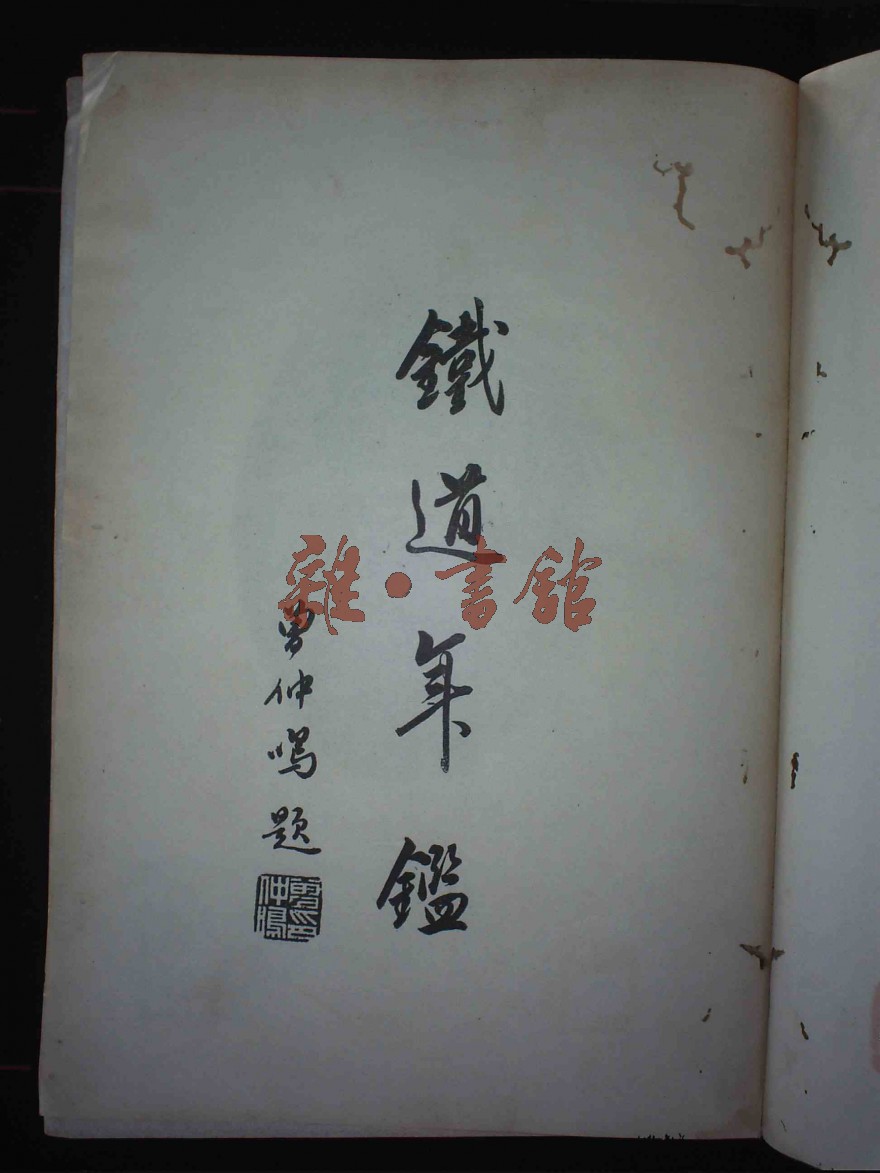 鐵道年鑑
曾仲鳴題
曾印仲鳴
雜·書館